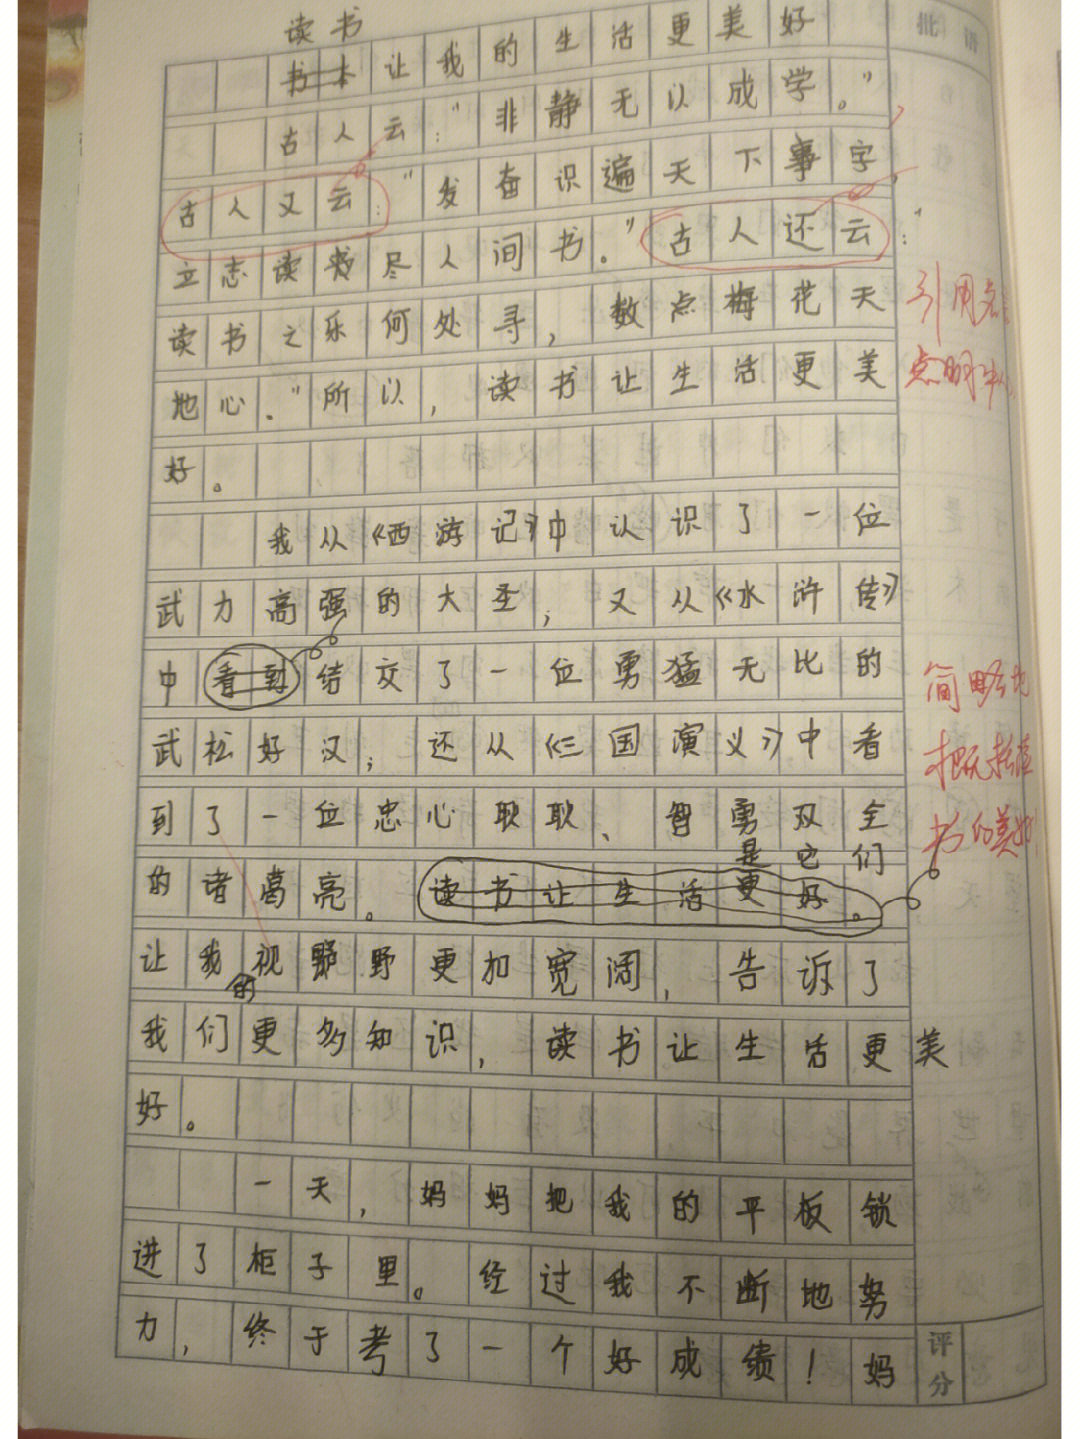 读书
书本让我的生活更美好
古人云:“非静无以成学。”
古人又云:“发奋识遍天下事字,
立志读书尽人间书。”古人还云:“
读书之乐何处寻,数点梅花天
地心.”所以,读书让生活更美
好。
我从《西游记》中认识了一位
武力高强的大圣,又从《水浒传》
中看到结交了一位勇猛无比的
武松好汉;还从《三国演义》中看
到了一位忠心耿耿、智勇双全
的诸葛亮。读书让生活更好。
是它们
让我的视野野更加宽阔,告诉了
我们更多知识,读书让生活更美
好。
一天,妈妈把我的平板锁
进了柜子里。经过我不断地努
力,终于考了一个好成绩!妈
批语
引用名
点明中心
简略地
概括读
书的美好
评分